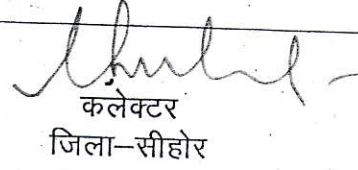 कलेक्टर
जिला–सीहोर